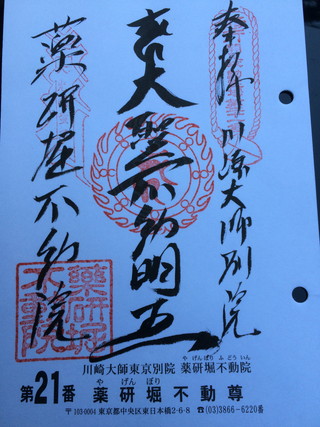 奉拝 川崎大師別院
本尊 大聖不動明王
薬研堀不動院
薬研堀不動院
川崎大師東京別院 薬研堀不動院
や げんぼり ふ どう いん
第21番 薬研堀不動尊
や げん ぼり
〒103-0004 東京都中央区東日本橋2-6-8 ☎(03)3866-6220番